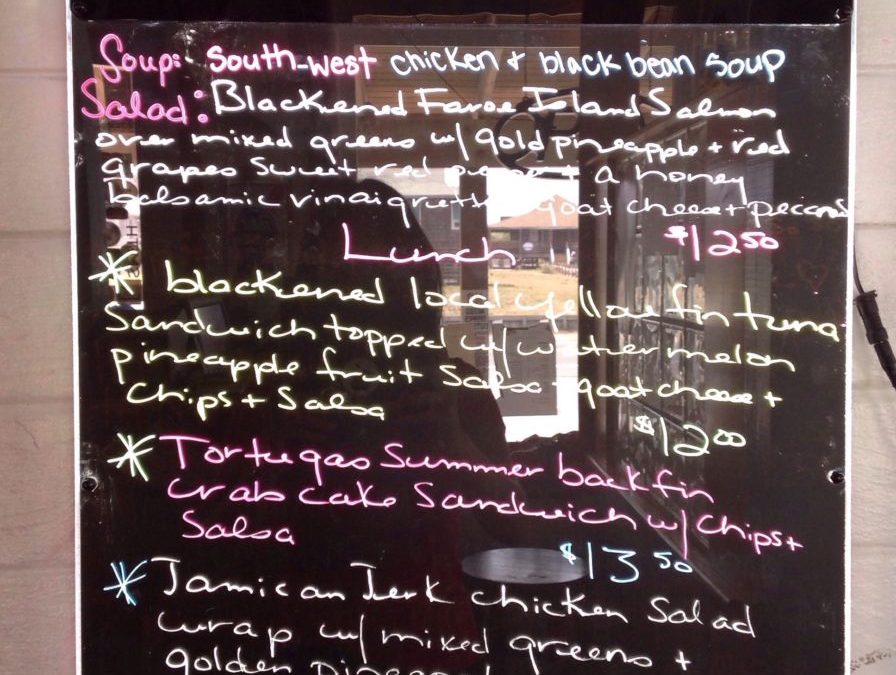 Soup: South-west chicken + black bean soup
Salad: Blackened Faroe Island Salmon
over mixed greens w/ gold pineapple + red
grapes sweet red + a honey
balsamic vinaigrette goat cheese + pecans
Lunch $12.50
* blackened local yellow fin tuna
Sandwich topped w/ watermelon
pineapple fruit Salsa goat cheese +
Chips + Salsa
$12.00
* Tortugas Summer backfin
crab cake Sandwich w/ chips +
Salsa
$13.50
* Jamican Jerk chicken Salad
wrap w/ mixed greens +
golden